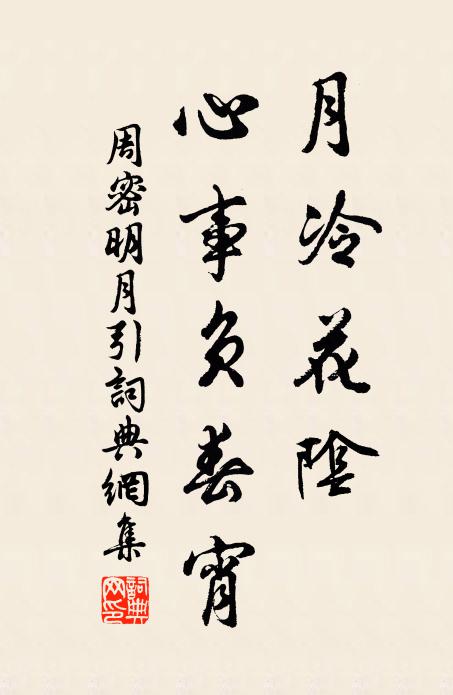 月冷花陰
心事負春宵
周密明月引詞典網集
詞典網印